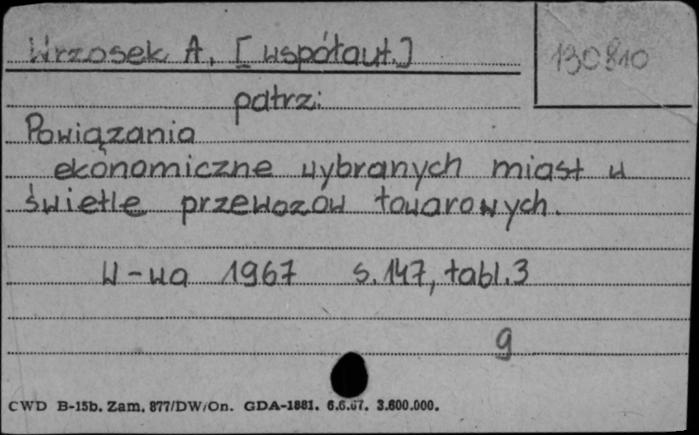 Wrzosek A. [współaut.]
130810
patrz:
Powiązania
ekonomiczne wybranych miast w
świetle przewozów towarowych.
W-wa 1967 s.147, tabl.3
9
CWD B-15b. Zam. 877/DW/On. GDA-1881. 6.6.67. 3.600.000.